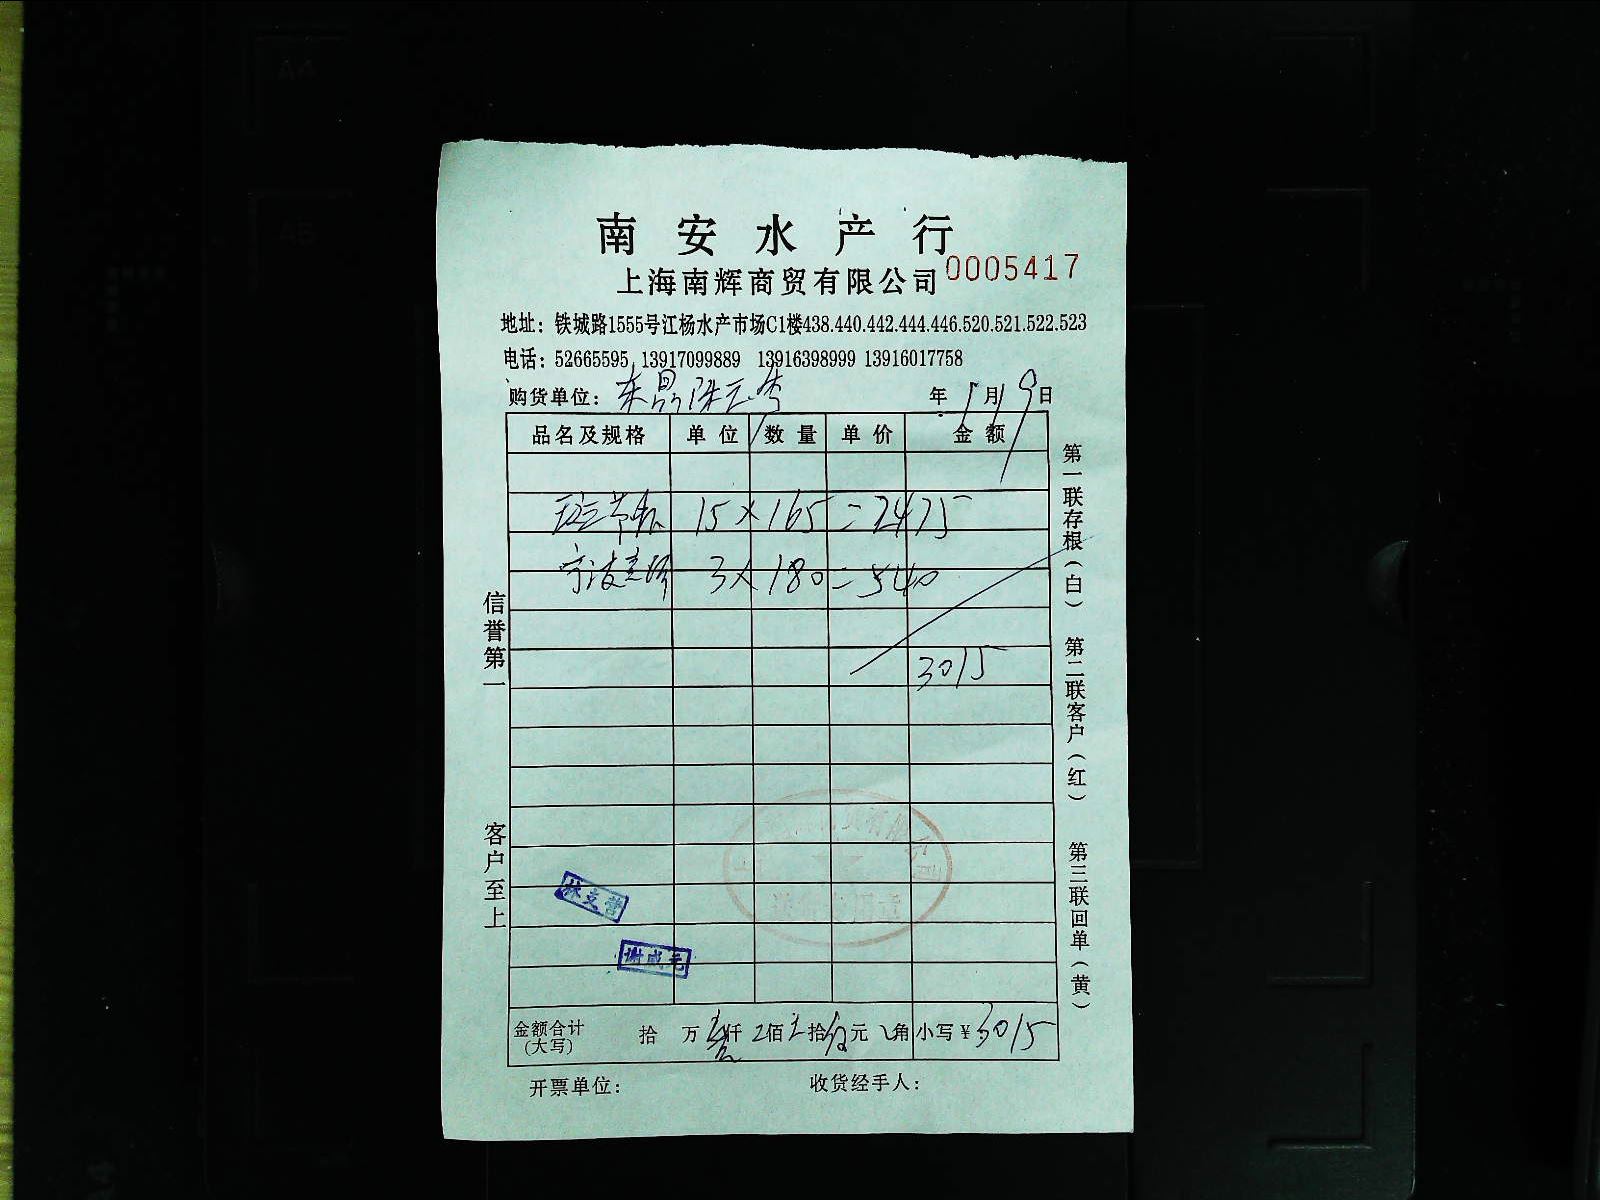 南安水产行
上海南辉商贸有限公司 0005417
地址：铁城路1555号江杨水产市场C1楼438.440.442.444.446.520.521.522.523
电话：52665595 13917099889 13916398999 13916017758
购货单位： 年 1月19日
品名及规格 单位 数量 单价 金额
斑节虾 15×165=2475
宁波 3×180=540
3015
信誉第一
客户至上
第一联存根（白） 第二联客户（红） 第三联回单（黄）
谢成元
金额合计 拾 万 仟 佰 拾 元 角 小写￥3015
（大写）
开票单位： 收货经手人：